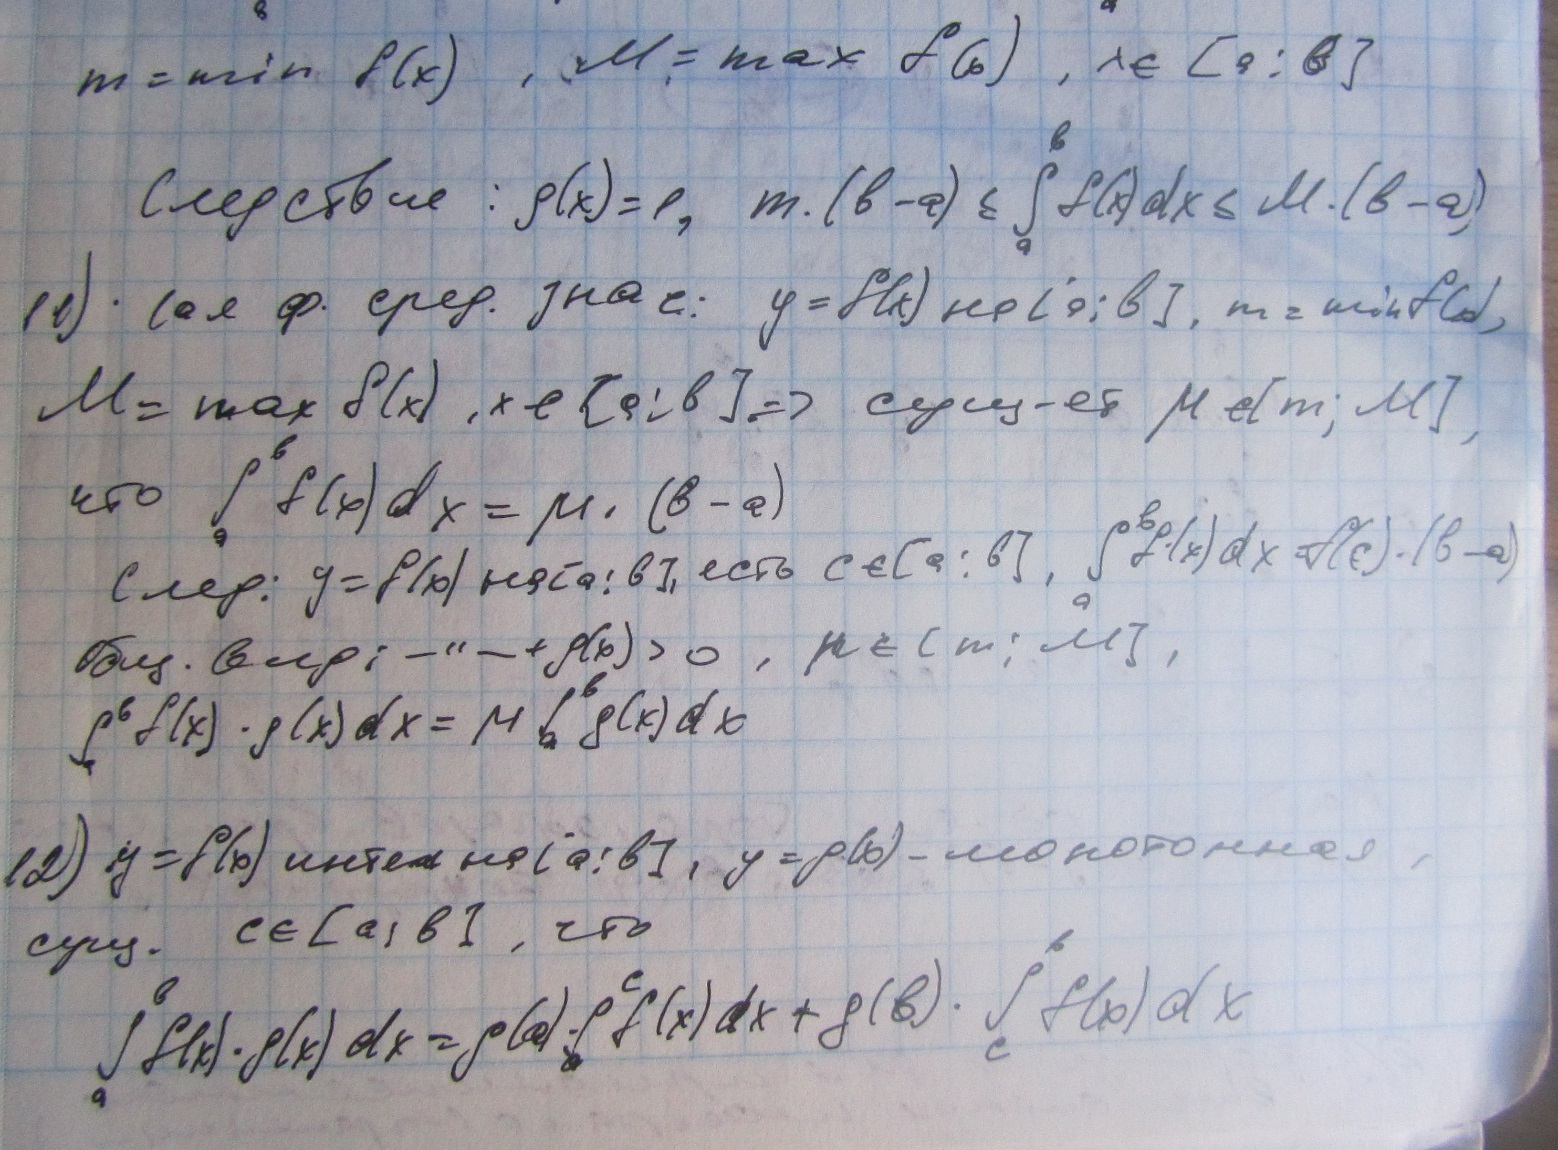 m = min f(x) , M = max f(x) , x ∈ [a; b]
Следствие : g(x) = 1, m · (b - a) ≤ ∫ₐᵇ f(x) dx ≤ M · (b - a)
11) · 1ая ф. сред. знач: y = f(x) на [a; b], m = min f(x),
M = max f(x) , x ∈ [a; b] => сущ-ет μ ∈ [m; M],
что ∫ₐᵇ f(x) dx = μ · (b - a)
След: y = f(x) на [a; b], есть c ∈ [a; b], ∫ₐᵇ f(x) dx = f(c) · (b - a)
Общ. вид: —"— + g(x) > 0 , μ ∈ [m; M],
∫ₐᵇ f(x) · g(x) dx = μ ∫ₐᵇ g(x) dx
12) y = f(x) инте на [a; b], y = g(x) - монотонная ,
сущ. c ∈ [a; b] , что
∫ₐᵇ f(x) · g(x) dx = g(a) · ∫ₐᶜ f(x) dx + g(b) · ∫꜀ᵇ f(x) dx